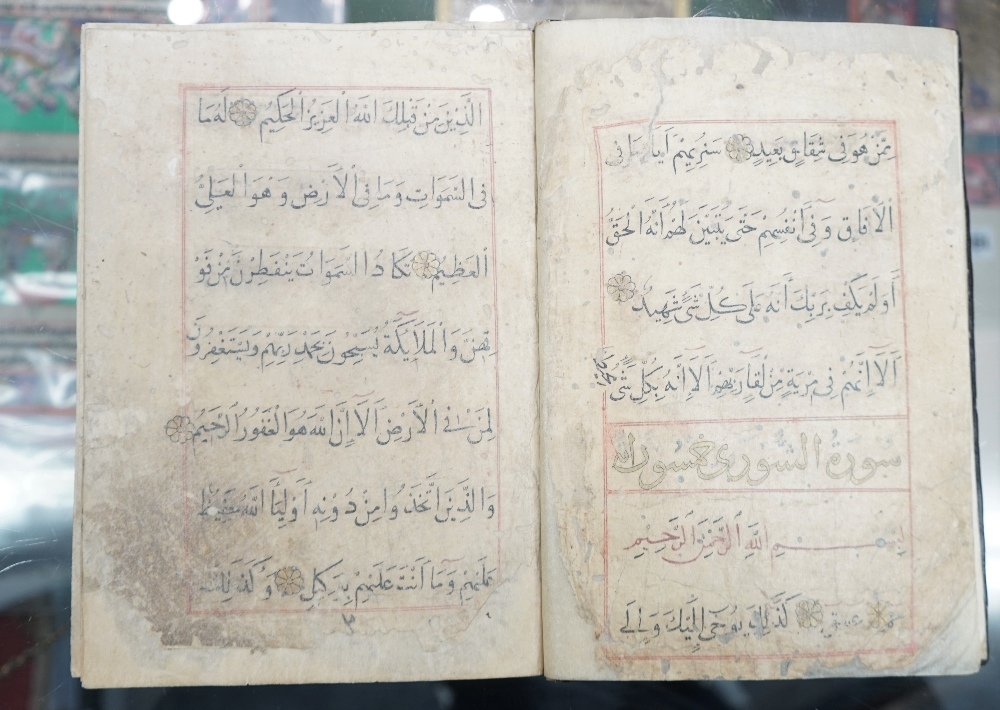 مِمَّنْ هُوَ فِي شِقَاقٍ بَعِيدٍ سَنُرِيهِمْ آيَاتِنَا فِي
الْآفَاقِ وَفِي أَنْفُسِهِمْ حَتَّى يَتَبَيَّنَ لَهُمْ أَنَّهُ الْحَقُّ
أَوَلَمْ يَكْفِ بِرَبِّكَ أَنَّهُ عَلَى كُلِّ شَيْءٍ شَهِيدٌ
أَلَا إِنَّهُمْ فِي مِرْيَةٍ مِنْ لِقَاءِ رَبِّهِمْ أَلَا إِنَّهُ بِكُلِّ شَيْءٍ مُحِيطٌ
سورة الشورى خمسون
بِسْمِ اللَّهِ الرَّحْمَنِ الرَّحِيمِ
كَذَلِكَ يُوحَى إِلَيْكَ وَإِلَى
الَّذِينَ مِنْ قَبْلِكَ اللَّهُ الْعَزِيزُ الْحَكِيمُ لَهُ مَا
فِي السَّمَوَاتِ وَمَا فِي الْأَرْضِ وَهُوَ الْعَلِيُّ
الْعَظِيمُ تَكَادُ السَّمَوَاتُ يَنْفَطِرْنَ مِنْ فَوْ
قِهِنَّ وَالْمَلَائِكَةُ يُسَبِّحُونَ بِحَمْدِ رَبِّهِمْ وَيَسْتَغْفِرُونَ
لِمَنْ فِي الْأَرْضِ أَلَا إِنَّ اللَّهَ هُوَ الْغَفُورُ الرَّحِيمُ
وَالَّذِينَ اتَّخَذُوا مِنْ دُونِهِ أَوْلِيَاءَ اللَّهُ حَفِيظٌ
عَلَيْهِمْ وَمَا أَنْتَ عَلَيْهِمْ بِوَكِيلٍ وَكَذَلِكَ
٣